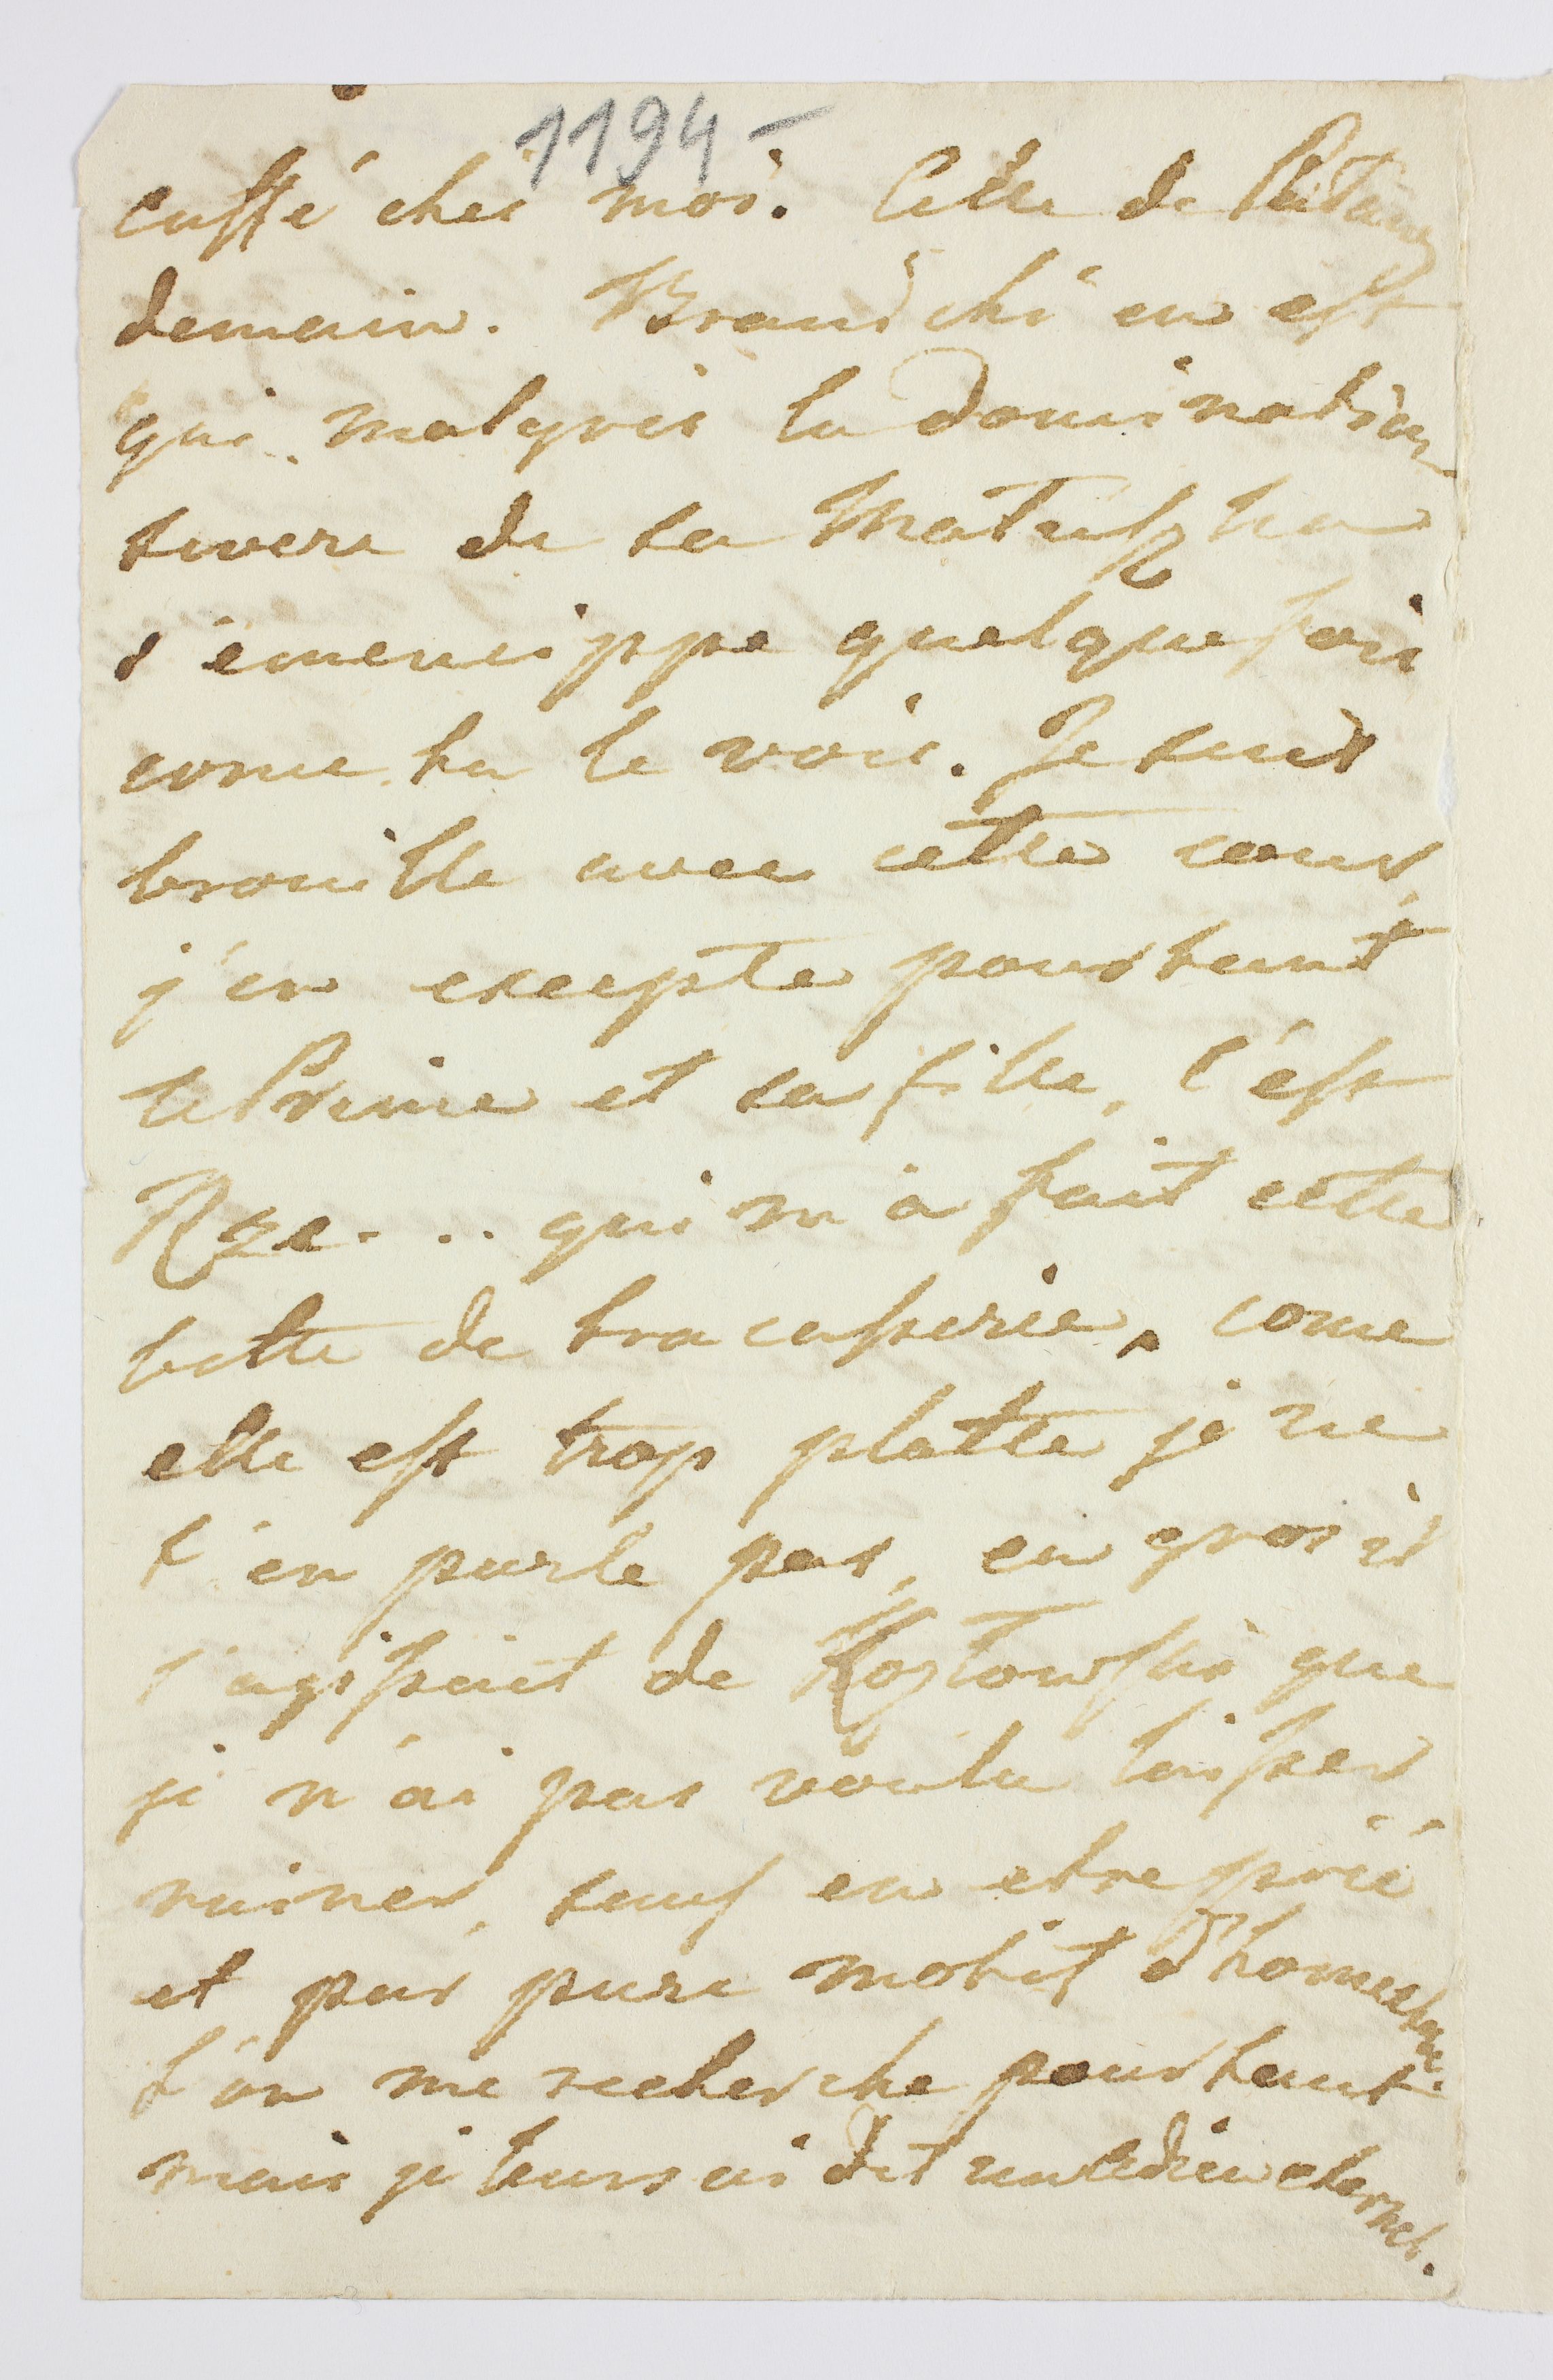 1194 -
caffé ches moi. Celle de
demain. Branichi en est
qui malgres la domination
severe de sa Matuszka
s'emencippe quelque fois
come tu le vois. Je suis
brouille avec cette cour,
j'en excepte pourtant
le Prince et sa fille, c'est
Rze... qui m'a fait cette
botte de tracasserie, come
elle est trop platte je ne
t'en parle pas, en gros il
s'agissait de Kozlowski que
je n'ai pas voulu laisser
ruiner, sauf en etre prié
et par pure motif d'homeste
L'on me recherche pourtant
mais je leurs ai dit un Adieu eternel.